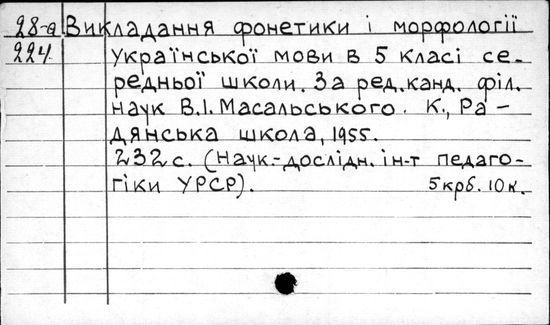 28-а Викладання фонетики і морфології
224 української мови в 5 класі се-
редньої школи. За ред. канд. філ.
наук В.І. Масальського. К., Ра-
дянська школа, 1955.
232 с. (Наук.-дослідн. ін-т педаго-
гіки УРСР). 5 крб. 10 к.